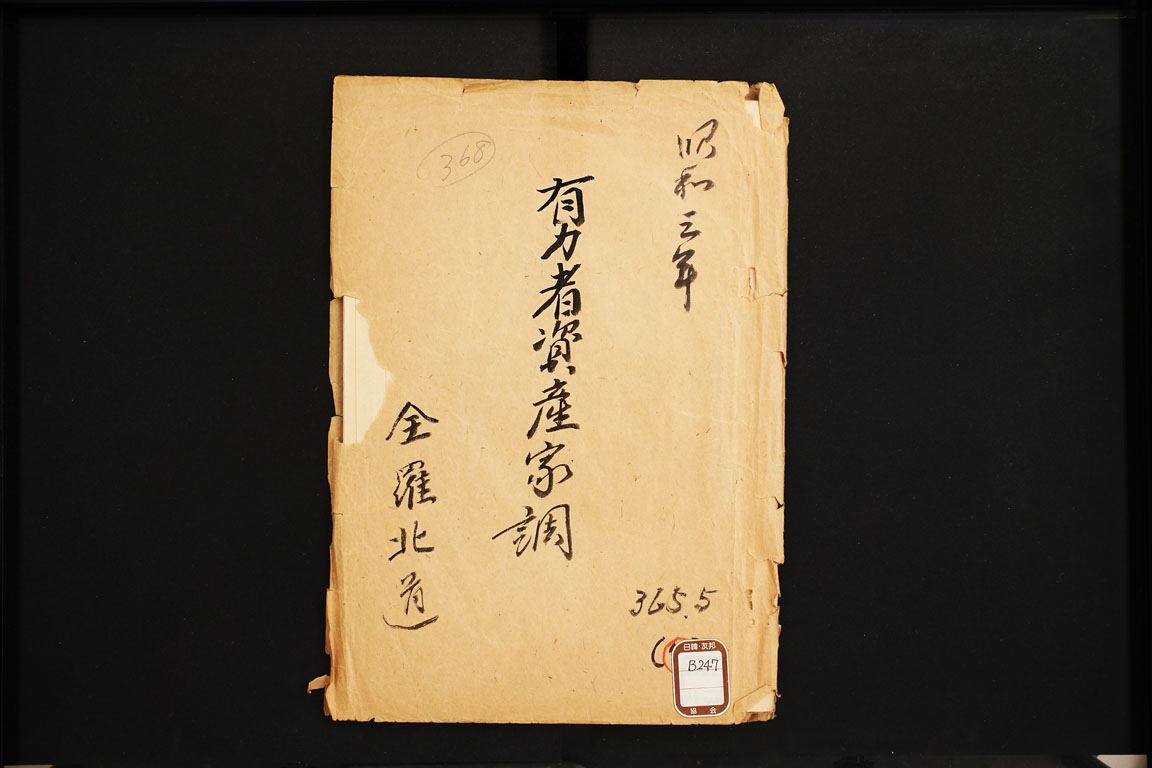 昭和三年
有力者資産家調
全羅北道
368
365.5
日韓・友邦
B247
協会